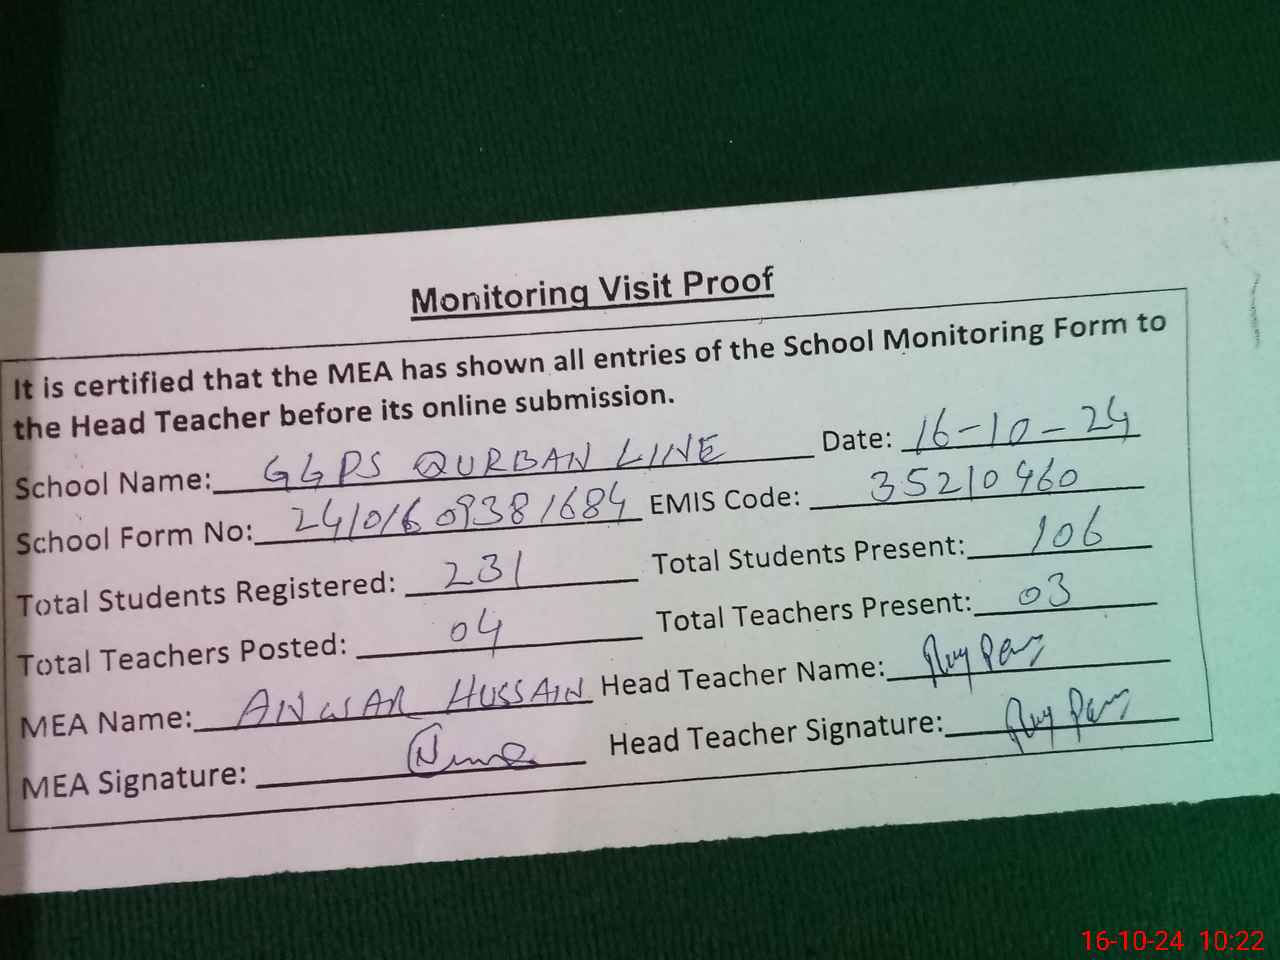 Monitoring Visit Proof
It is certified that the MEA has shown all entries of the School Monitoring Form to
the Head Teacher before its online submission.
School Name: GGPS QURBAN LINE Date: 16-10-24
School Form No: 24101609381684 EMIS Code: 35210460
Total Students Registered: 231 Total Students Present: 106
Total Teachers Posted: 04 Total Teachers Present: 03
MEA Name: ANWAR HUSSAIN Head Teacher Name:
MEA Signature: Head Teacher Signature:
16-10-24 10:22